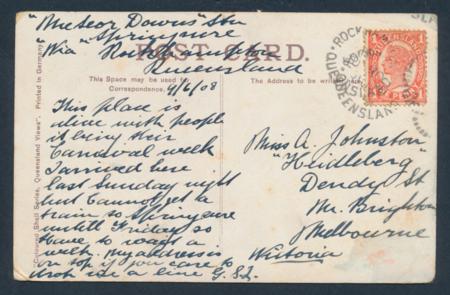 "Meteor Downs" Stn
Springsure
"Via" Rockhampton
Queensland
POST CARD.
This Space may be used for
Correspondence.
The Address to be written here
9/6/08
This place is
alive with people
it being their
Carnival week
I arrived here
last Sunday night
but Cannot get a
train to Springsure
untill Friday so
have to wait a
week. My address is
on top if you care to
drop me a line G.S.L.
Miss A. Johnston
"Heidleberg"
Dendy St
Mr. Brighton
Melbourne
Victoria
Coloured Shell Series, Queensland Views". Printed in Germany
ROCK
QUEENSLAND
QUEENSLAND